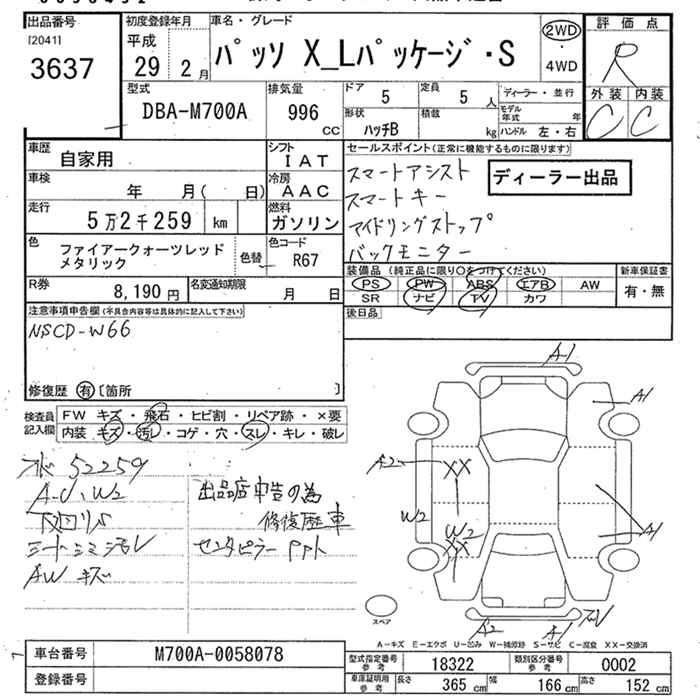 出品番号 初度登録年月 車名・グレード 評価点
[2041]
3637
平成
29 2月
パッソ X_Lパッケージ・S
2WD
・
4WD
R
型式 排気量 ドア 5 定員 5人 ディーラー・並行 外装 内装
DBA-M700A 996 CC 形状 ハッチB 積載 kg モデル年式 年 ハンドル 左・右 C C
車歴 自家用 シフト IAT セールスポイント(正常に機能するものに限ります)
車検 年 月( 日) 冷房 AAC スマートアシスト ディーラー出品
スマートキー
走行 5万2千259 km 燃料 ガソリン アイドリングストップ
バックモニター
色 ファイアークォーツレッド 色替 色コード
メタリック R67 装備品(純正品に限り○をつけてください) 新車保証書
R券 8,190円 名変通知期限 月 日 PS PW ABS エアB AW 有・無
SR ナビ TV カワ
注意事項申告欄(不具合内容等は具体的に記入して下さい) 後日品
NSCD-W66
修復歴 有 [箇所 ]
検査員 FW キズ・飛石・ヒビ割・リペア跡・×要
記入欄 内装 キズ・汚レ・コゲ・穴・スレ・キレ・破レ
52259
A-U、W2 出品店申告の為
下回りS 修復歴車
シートシミ汚レ センタピラー
AW キズ
A-1
A1
A2 XX
W2 W2
XX A1
A2 A-1
スペア
A-キズ E-エクボ U-凹み W-補修跡 S-サビ C-腐食 XX-交換済
車台番号 M700A-0058078 型式指定番号 参考 18322 類別区分番号 参考 0002
登録番号 車庫証明用 参考 長さ 365 cm 幅 166 cm 高さ 152 cm